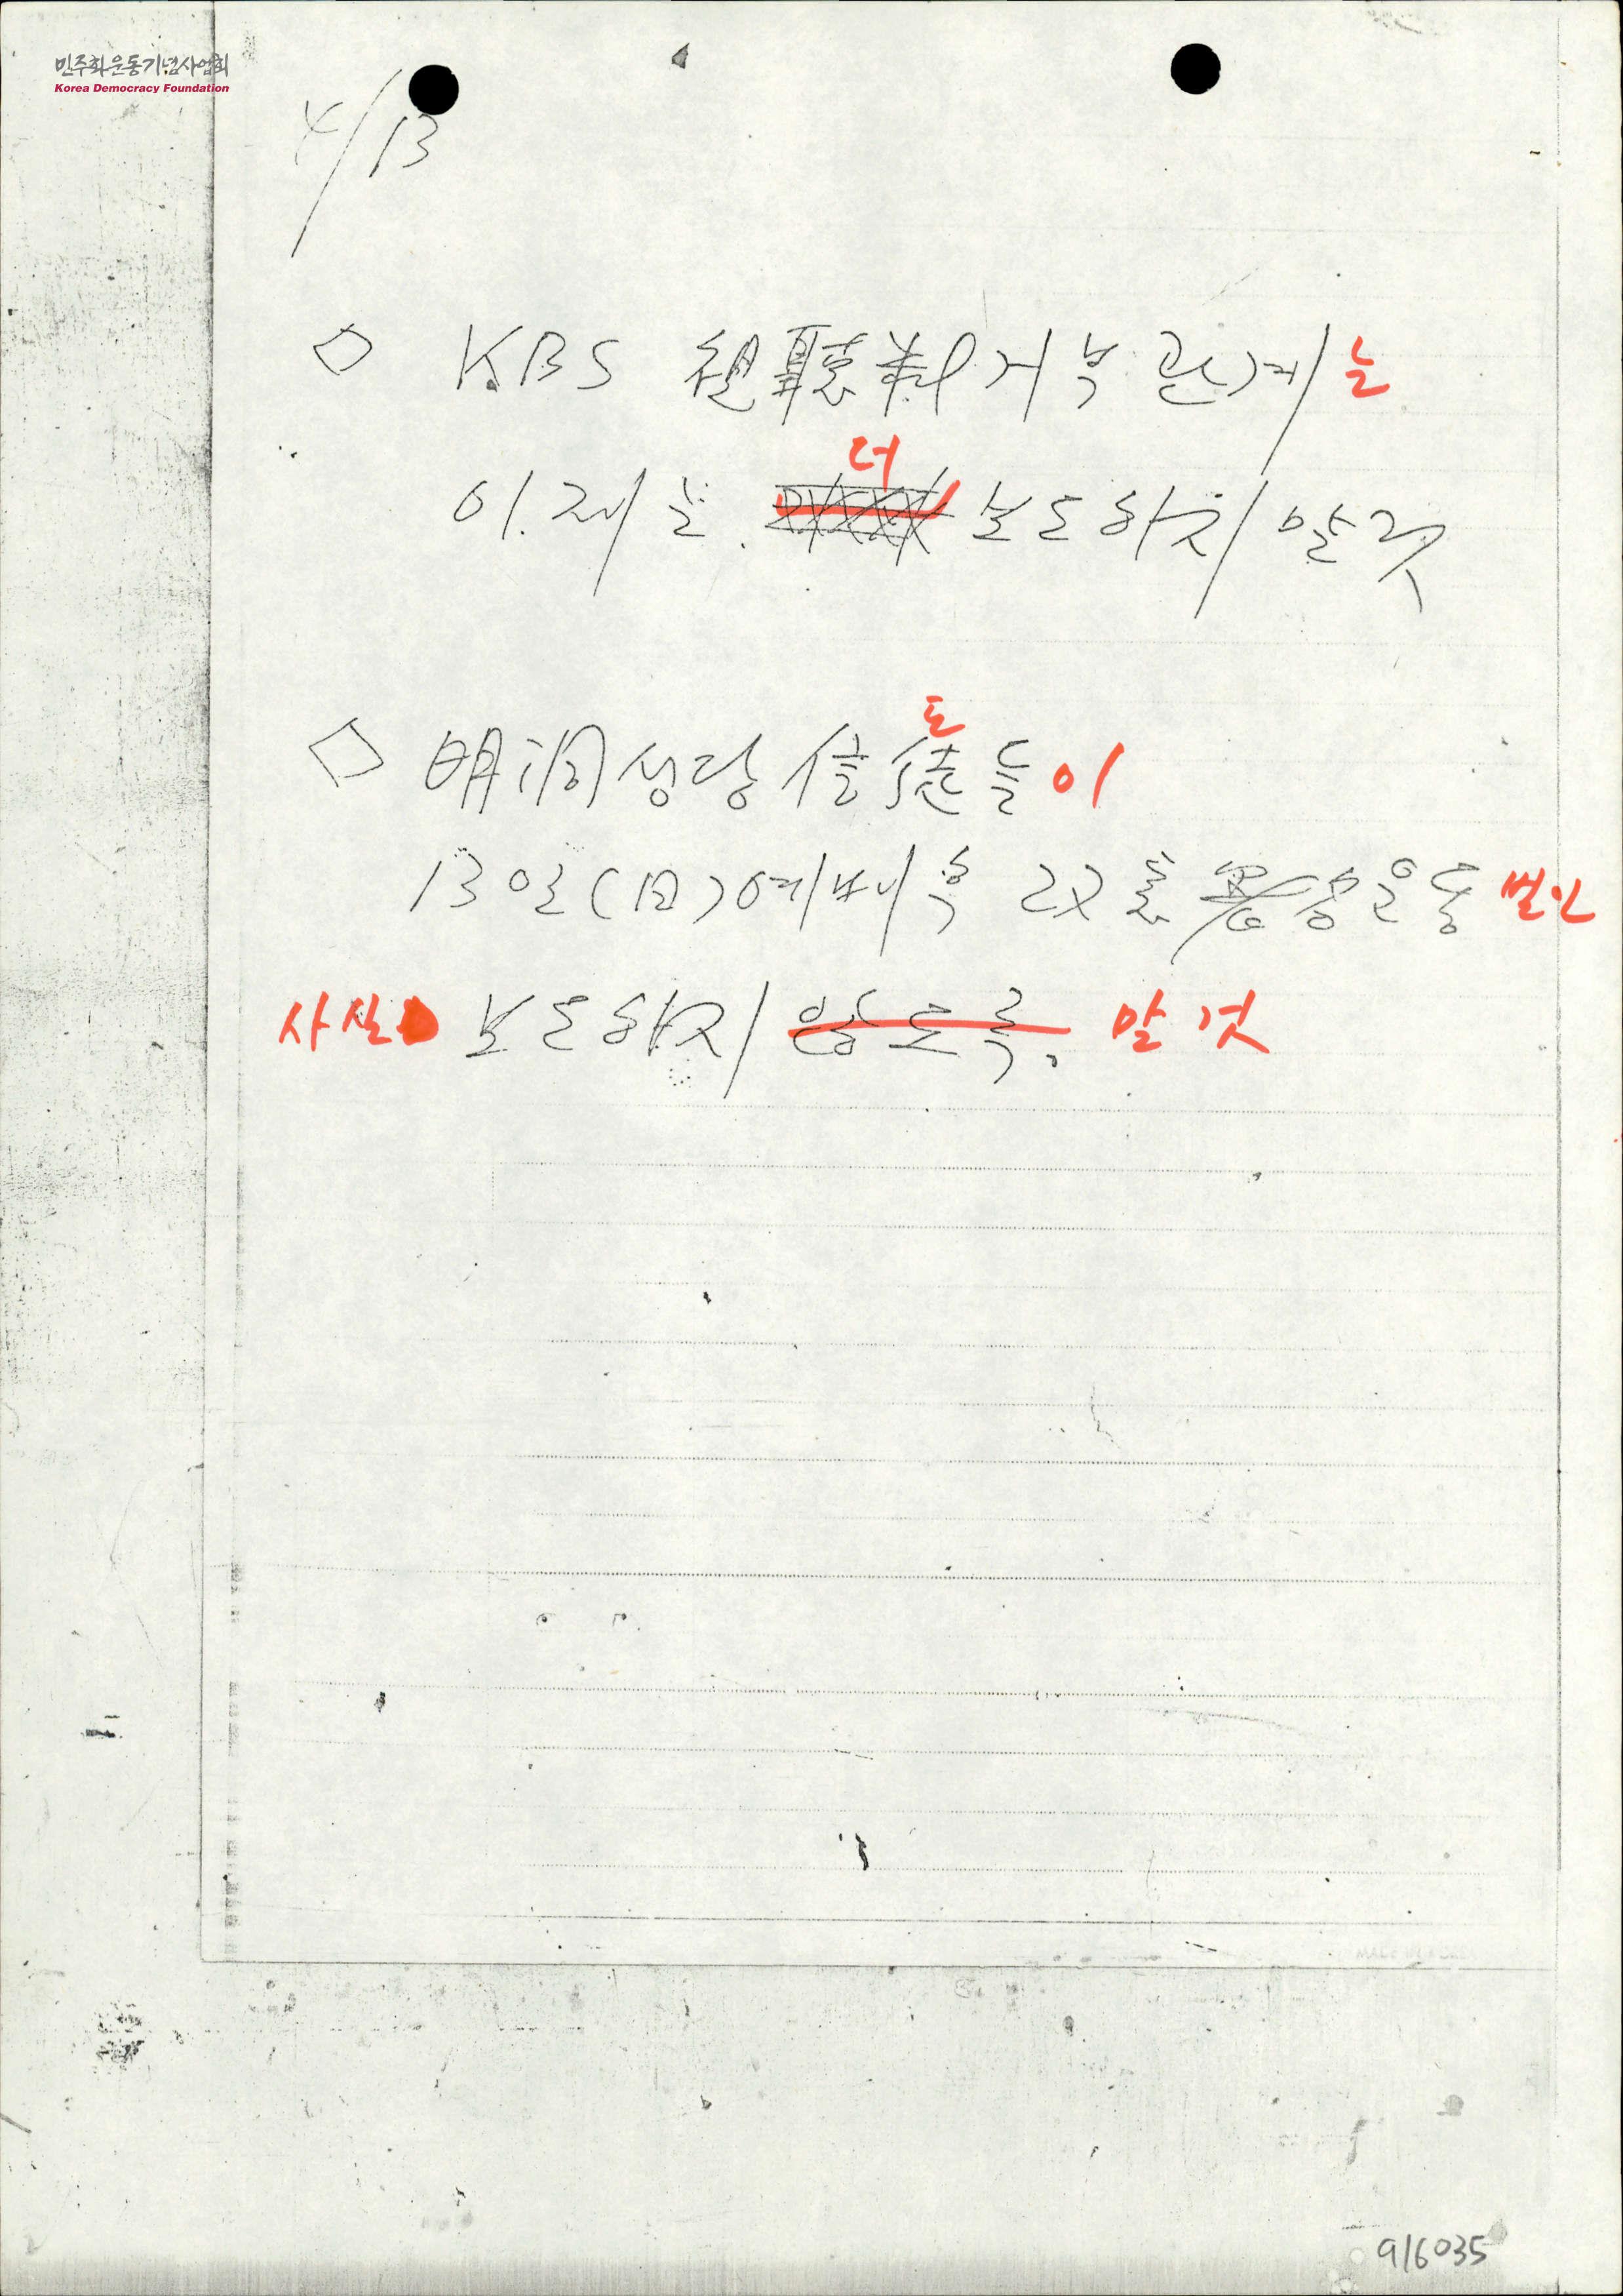 민주화운동기념사업회
Korea Democracy Foundation
4/13
◇ KBS 視聽料거부 관계는
더
이제는 보도하지 말것
도
◇ 明洞성당 信徒들이
13일(日) 예배후 改憲 서명운동 벌인
사실 보도하지 않도록. 말 것
916035